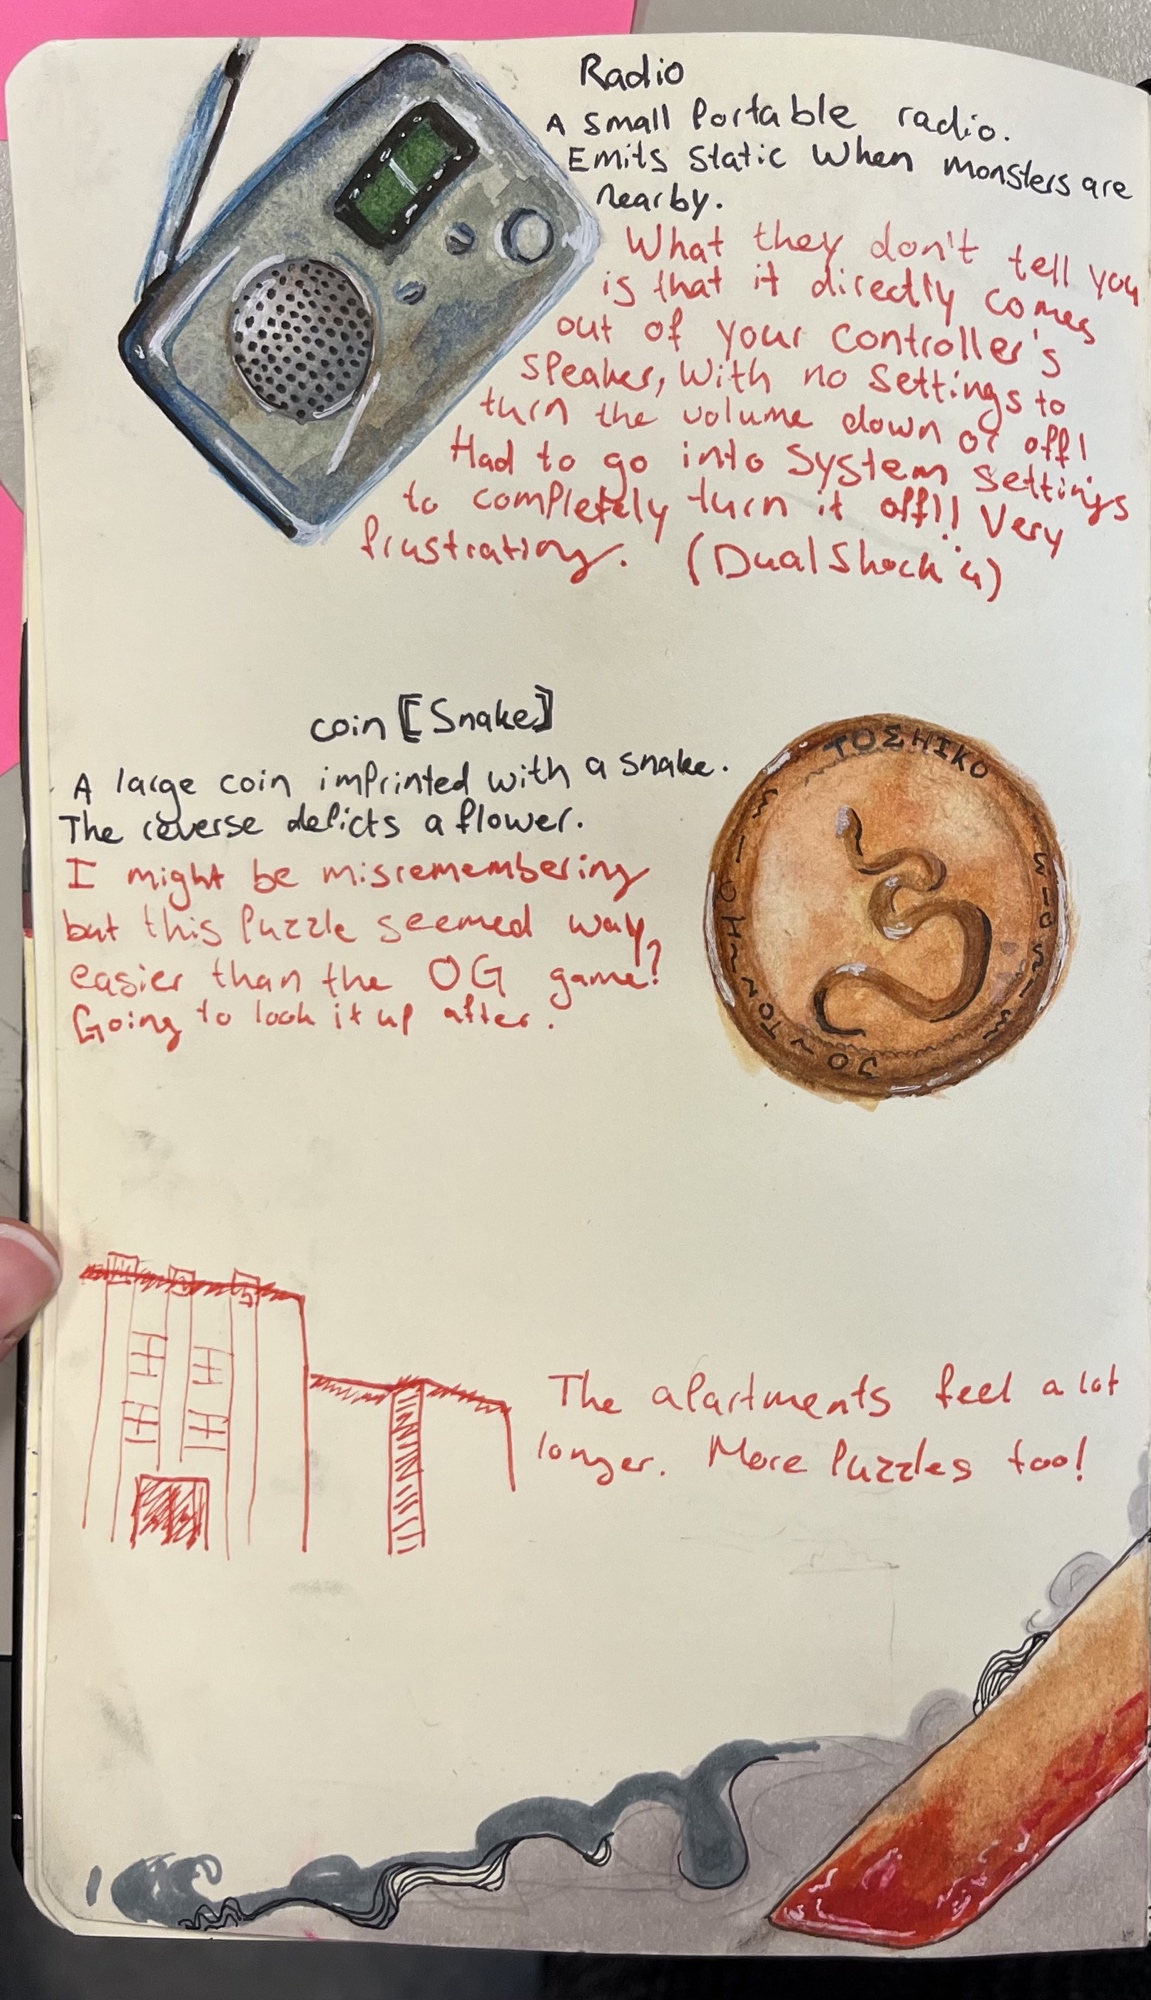 Radio
A small Portable radio.
Emits static when monsters are
nearby.
What they don't tell you
is that it directly comes
out of your controller's
speaker, with no settings to
turn the volume down or off!
Had to go into system settings
to completely turn it off!! Very
frustrating. (DualShock 4)
coin [Snake]
A large coin imprinted with a snake.
The reverse depicts a flower.
I might be misremembering
but this Puzzle seemed way
easier than the OG game?!
Going to look it up after.
TOΣHIKO
The apartments feel a lot
longer. More Puzzles too!